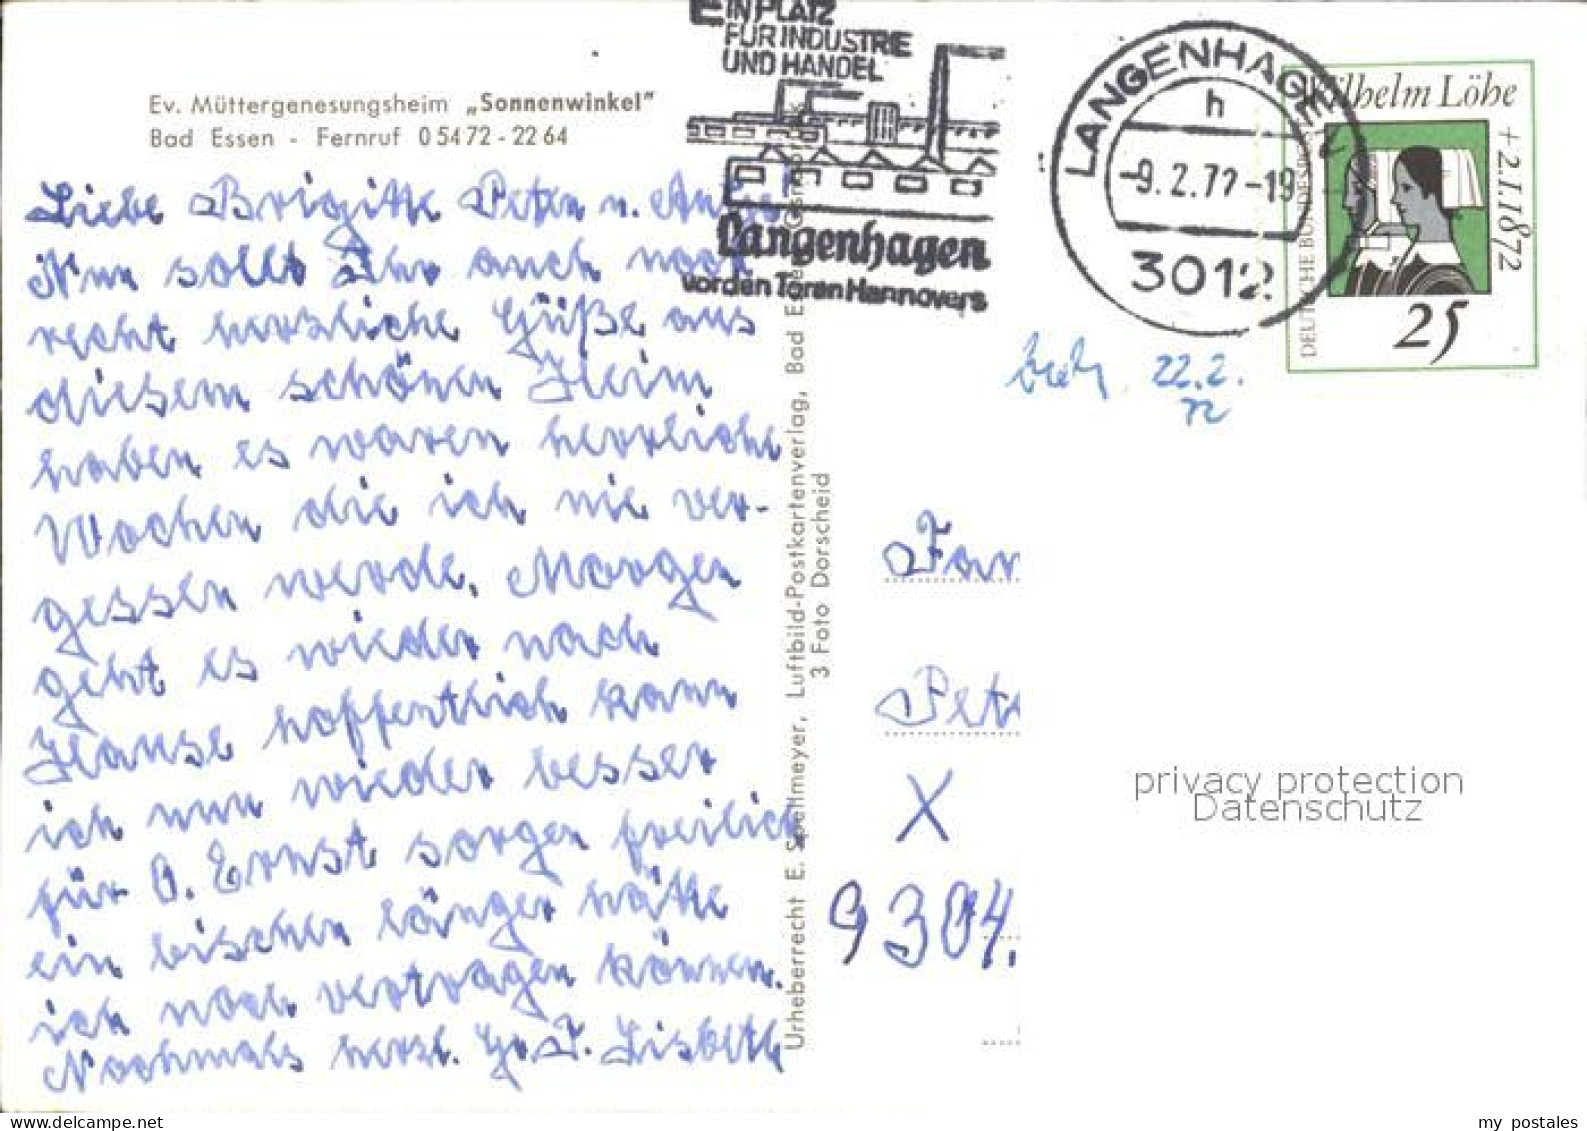 EIN PLATZ
FÜR INDUSTRIE
UND HANDEL
Langenhagen
vor den Toren Hannovers
LANGENHAGEN
h
-9.2.72-19
3012
Wilhelm Löhe
+ 2.1.1872
DEUTSCHE BUNDESPOST
25
Ev. Müttergenesungsheim „Sonnenwinkel”
Bad Essen - Fernruf 05472-2264
Liebe Brigitte Peter u.
Nun sollt Ihr auch noch
recht herzliche Güße aus
diesem schönen Heim
haben es waren herrliche
Wochen die ich nie ver-
gessen werde. Morgen
geht es wieder nach
Hause hoffentlich kann
ich nun wieder besser
für O. Ernst sorgen freilich
ein bischen länger hätte
ich noch vertragen können.
Nochmals herzl. Gr. T. Lisbeth
Urheberrecht E. Spellmeyer, Luftbild-Postkartenverlag, Bad Essen
3 Foto Dorscheid
22.2.
72
Fam
Pet
X
9304.
privacy protection
Datenschutz
my postales